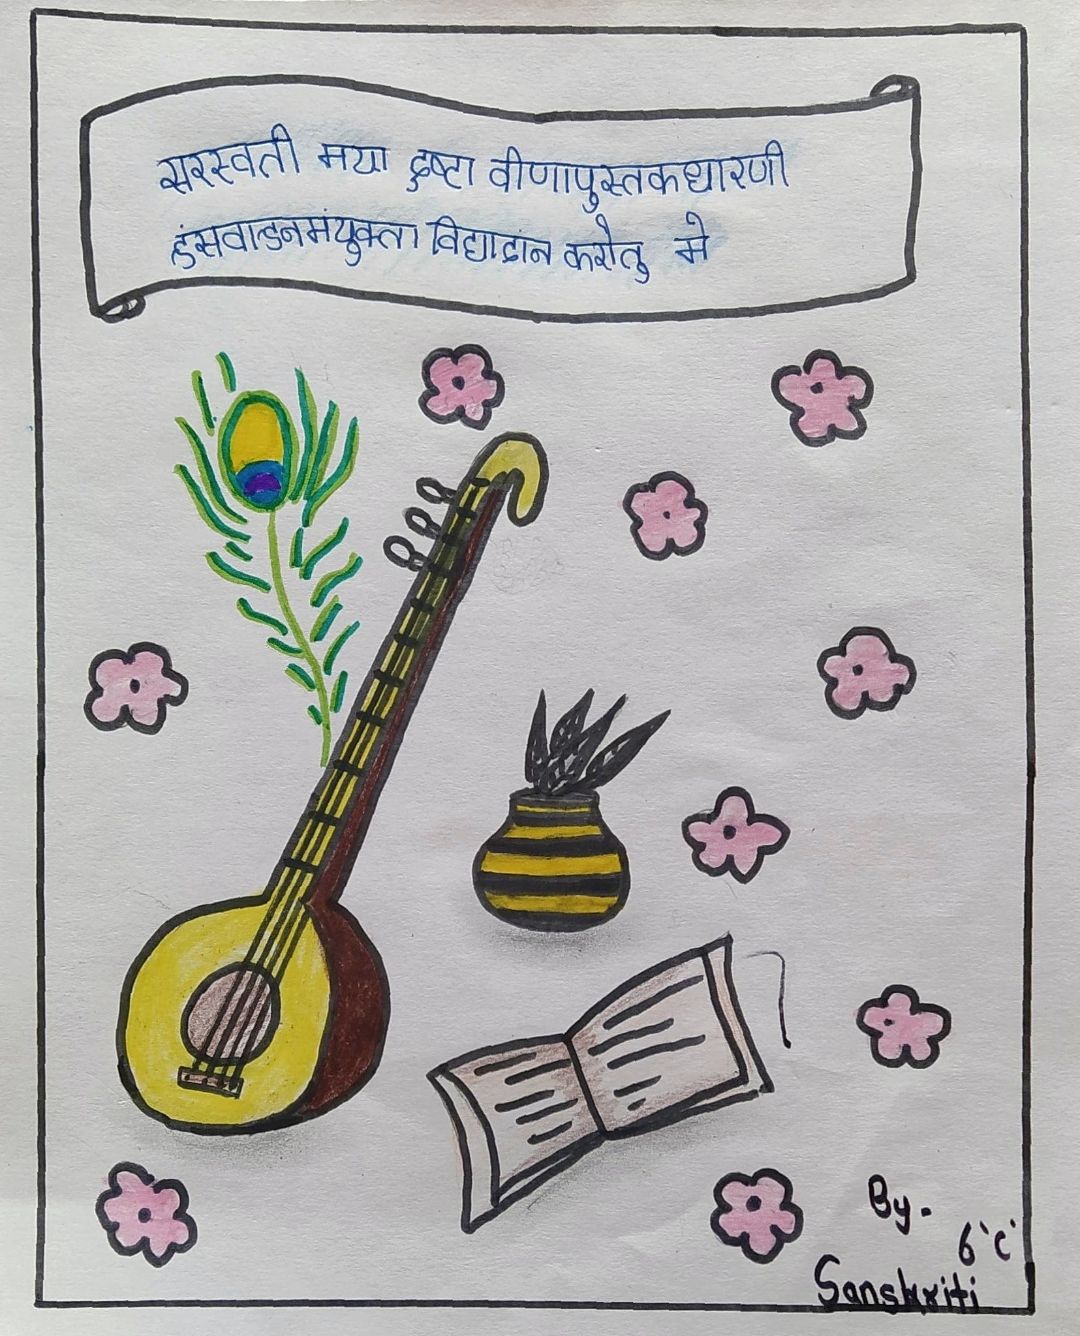 सरस्वती मया द्रष्टा वीणापुस्तकधारणी
हंसवाहनमंयुक्ता विद्यादान करोतु मे
By.
6'c'
Sanskriti